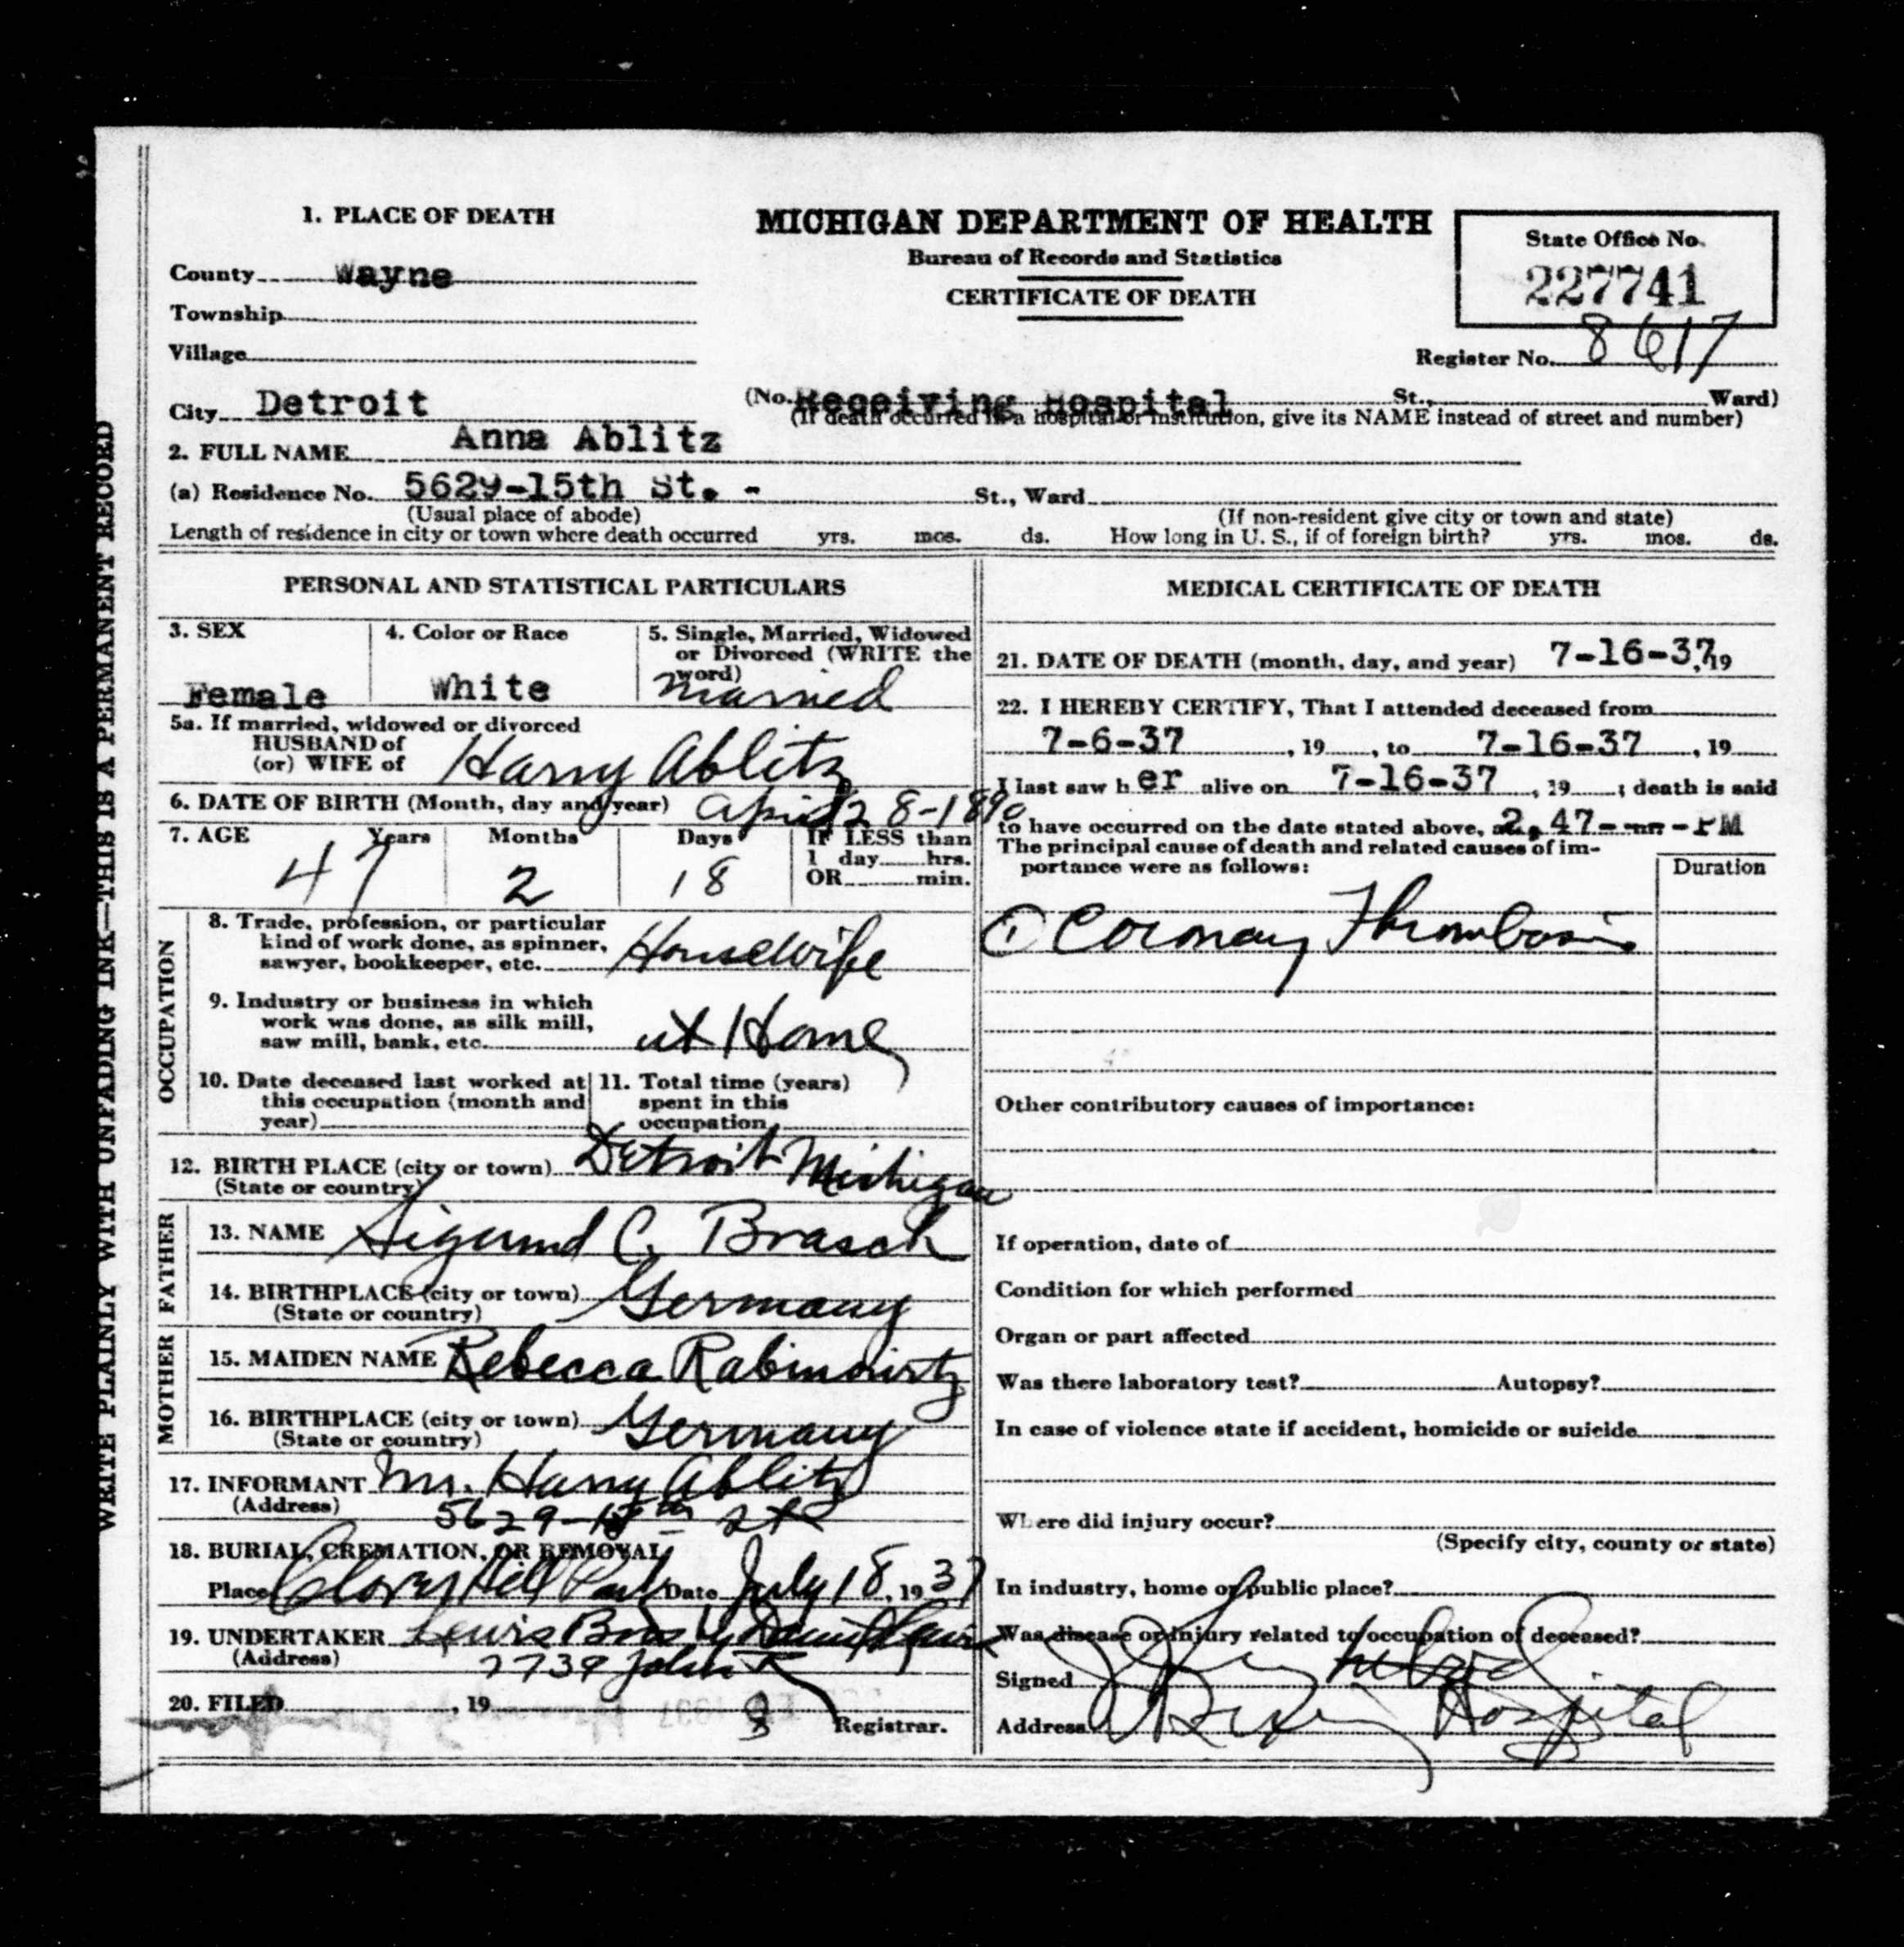 WRITE PLAINLY WITH UNFADING INK—THIS IS A PERMANENT RECORD
1. PLACE OF DEATH
County Wayne
Township
Village
City Detroit
MICHIGAN DEPARTMENT OF HEALTH
Bureau of Records and Statistics
CERTIFICATE OF DEATH
State Office No.
227741
Register No. 8617
(No. Receiving Hospital St., Ward)
(If death occurred in a hospital or institution, give its NAME instead of street and number)
2. FULL NAME Anna Ablitz
(a) Residence No. 5629-15th St. - St., Ward
(Usual place of abode) (If non-resident give city or town and state)
Length of residence in city or town where death occurred yrs. mos. ds. How long in U. S., if of foreign birth? yrs. mos. ds.
PERSONAL AND STATISTICAL PARTICULARS
3. SEX
Female
4. Color or Race
White
5. Single, Married, Widowed
or Divorced (WRITE the
word)
Married
5a. If married, widowed or divorced
HUSBAND of
(or) WIFE of Harry Ablitz
6. DATE OF BIRTH (Month, day and year) April 28-1890
7. AGE Years Months Days IF LESS than
1 day hrs.
OR min.
47 2 18
OCCUPATION
8. Trade, profession, or particular
kind of work done, as spinner,
sawyer, bookkeeper, etc. Housewife
9. Industry or business in which
work was done, as silk mill,
saw mill, bank, etc. at Home
10. Date deceased last worked at
this occupation (month and
year)
11. Total time (years)
spent in this
occupation
12. BIRTH PLACE (city or town) Detroit Michigan
(State or country)
FATHER
13. NAME Sigmund C. Brasch
14. BIRTHPLACE (city or town) Germany
(State or country)
MOTHER
15. MAIDEN NAME Rebecca Rabinowitz
16. BIRTHPLACE (city or town) Germany
(State or country)
17. INFORMANT Mr. Harry Ablitz
(Address) 5629-15th St
18. BURIAL, CREMATION, OR REMOVAL
Place Clover Hill Park Date July 18, 1937
19. UNDERTAKER Lewis Bros by
(Address) 7739 John R
20. FILED , 19 Registrar.
MEDICAL CERTIFICATE OF DEATH
21. DATE OF DEATH (month, day, and year) 7-16-37, 19
22. I HEREBY CERTIFY, That I attended deceased from
7-6-37, 19 , to 7-16-37, 19
I last saw h er alive on 7-16-37, 19 ; death is said
to have occurred on the date stated above, at 2.47 PM
The principal cause of death and related causes of im-
portance were as follows:
Duration
① Coronary Thrombosis
Other contributory causes of importance:
If operation, date of
Condition for which performed
Organ or part affected
Was there laboratory test? Autopsy?
In case of violence state if accident, homicide or suicide
Where did injury occur?
(Specify city, county or state)
In industry, home or public place?
Was disease or injury related to occupation of deceased?
Signed
Address Receiving Hospital